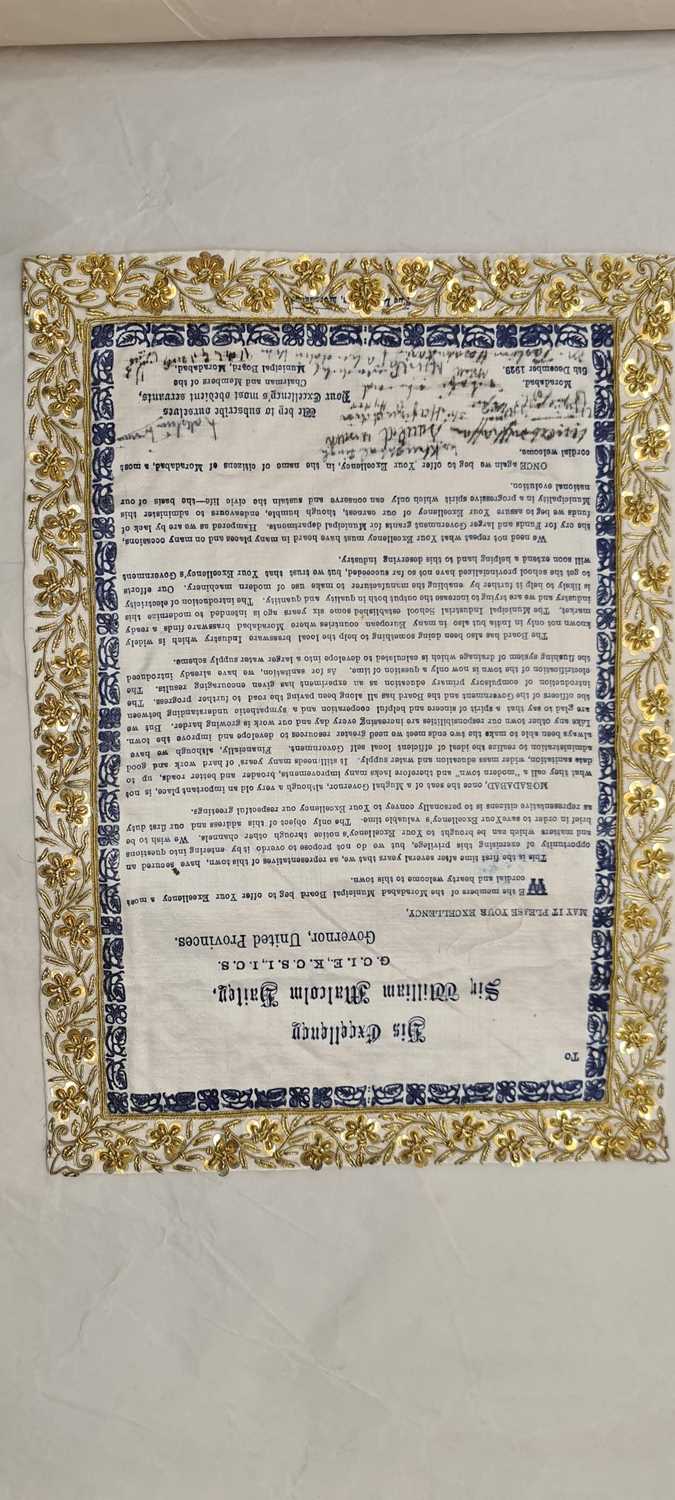 To
His Excellency
Sir William Malcolm Hailey,
G. C. I. E., K. C. S. I., I. C. S.
Governor, United Provinces.
MAY IT PLEASE YOUR EXCELLENCY,
WE the members of the Moradabad Municipal Board beg to offer Your Excellency a most
cordial and hearty welcome to this town.
This is the first time after several years that we, as representatives of this town, have secured an
opportunity of exercising this privilege, but we do not propose to overdo it by entering into questions
and matters which can be brought to Your Excellency's notice through other channels. We wish to be
brief in order to save Your Excellency's valuable time. The only object of this address and our first duty
as representative citizens is to personally convey to Your Excellency our respectful greetings.
MORADABAD, once the seat of a Mughal Governor, although a very old an important place, is not
what they call a "modern town" and therefore lacks many improvements, broader and better roads, up to
date sanitation, wider mass education and water supply. It still needs many years of hard work and good
administration to realise the ideal of efficient local self Government. Financially, although we have
always been able to make the two ends meet we need greater resources to develope and improve the town.
Like any other town our responsibilities are increasing every day and our work is growing harder. But we
are glad to say that a spirit of sincere and helpful cooperation and a sympathetic understanding between
the officers of the Government and the Board has all along been paving the road to further progress. The
introduction of compulsory primary education as an experiment has given encouraging results. The
electrification of the town is now only a question of time. As for sanitation, we have already introduced
the flushing system of drainage which is calculated to develope into a larger water supply scheme.
The Board has also been doing something to help the local brassware Industry which is widely
known not only in India but also in many European countries where Moradabad brassware finds a ready
market. The Municipal Industrial School established some six years ago is intended to modernize this
industry and we are trying to increase the output both in quality and quantity. The introduction of electricity
is likely to help it further by enabling the manufacturer to make use of modern machinery. Our efforts
to get the school provincialized have not so far succeeded, but we trust that Your Excellency's Government
will soon extend a helping hand to this deserving industry.
We need not repeat what Your Excellency must have heard in many places and on many occasions,
the cry for Funds and larger Government grants for Municipal departments. Hampered as we are by lack of
funds we beg to assure Your Excellency of our earnest, though humble, endeavours to administer this
Municipality in a progressive spirit which only can conserve and sustain the civic life—the basis of our
national evolution.
ONCE again we beg to offer Your Excellency, in the name of citizens of Moradabad, a most
cordial welcome.
We beg to subscribe ourselves
Your Excellency's most obedient servants,
Chairman and Members of the
Municipal Board, Moradabad.
Moradabad.
6th December 1929